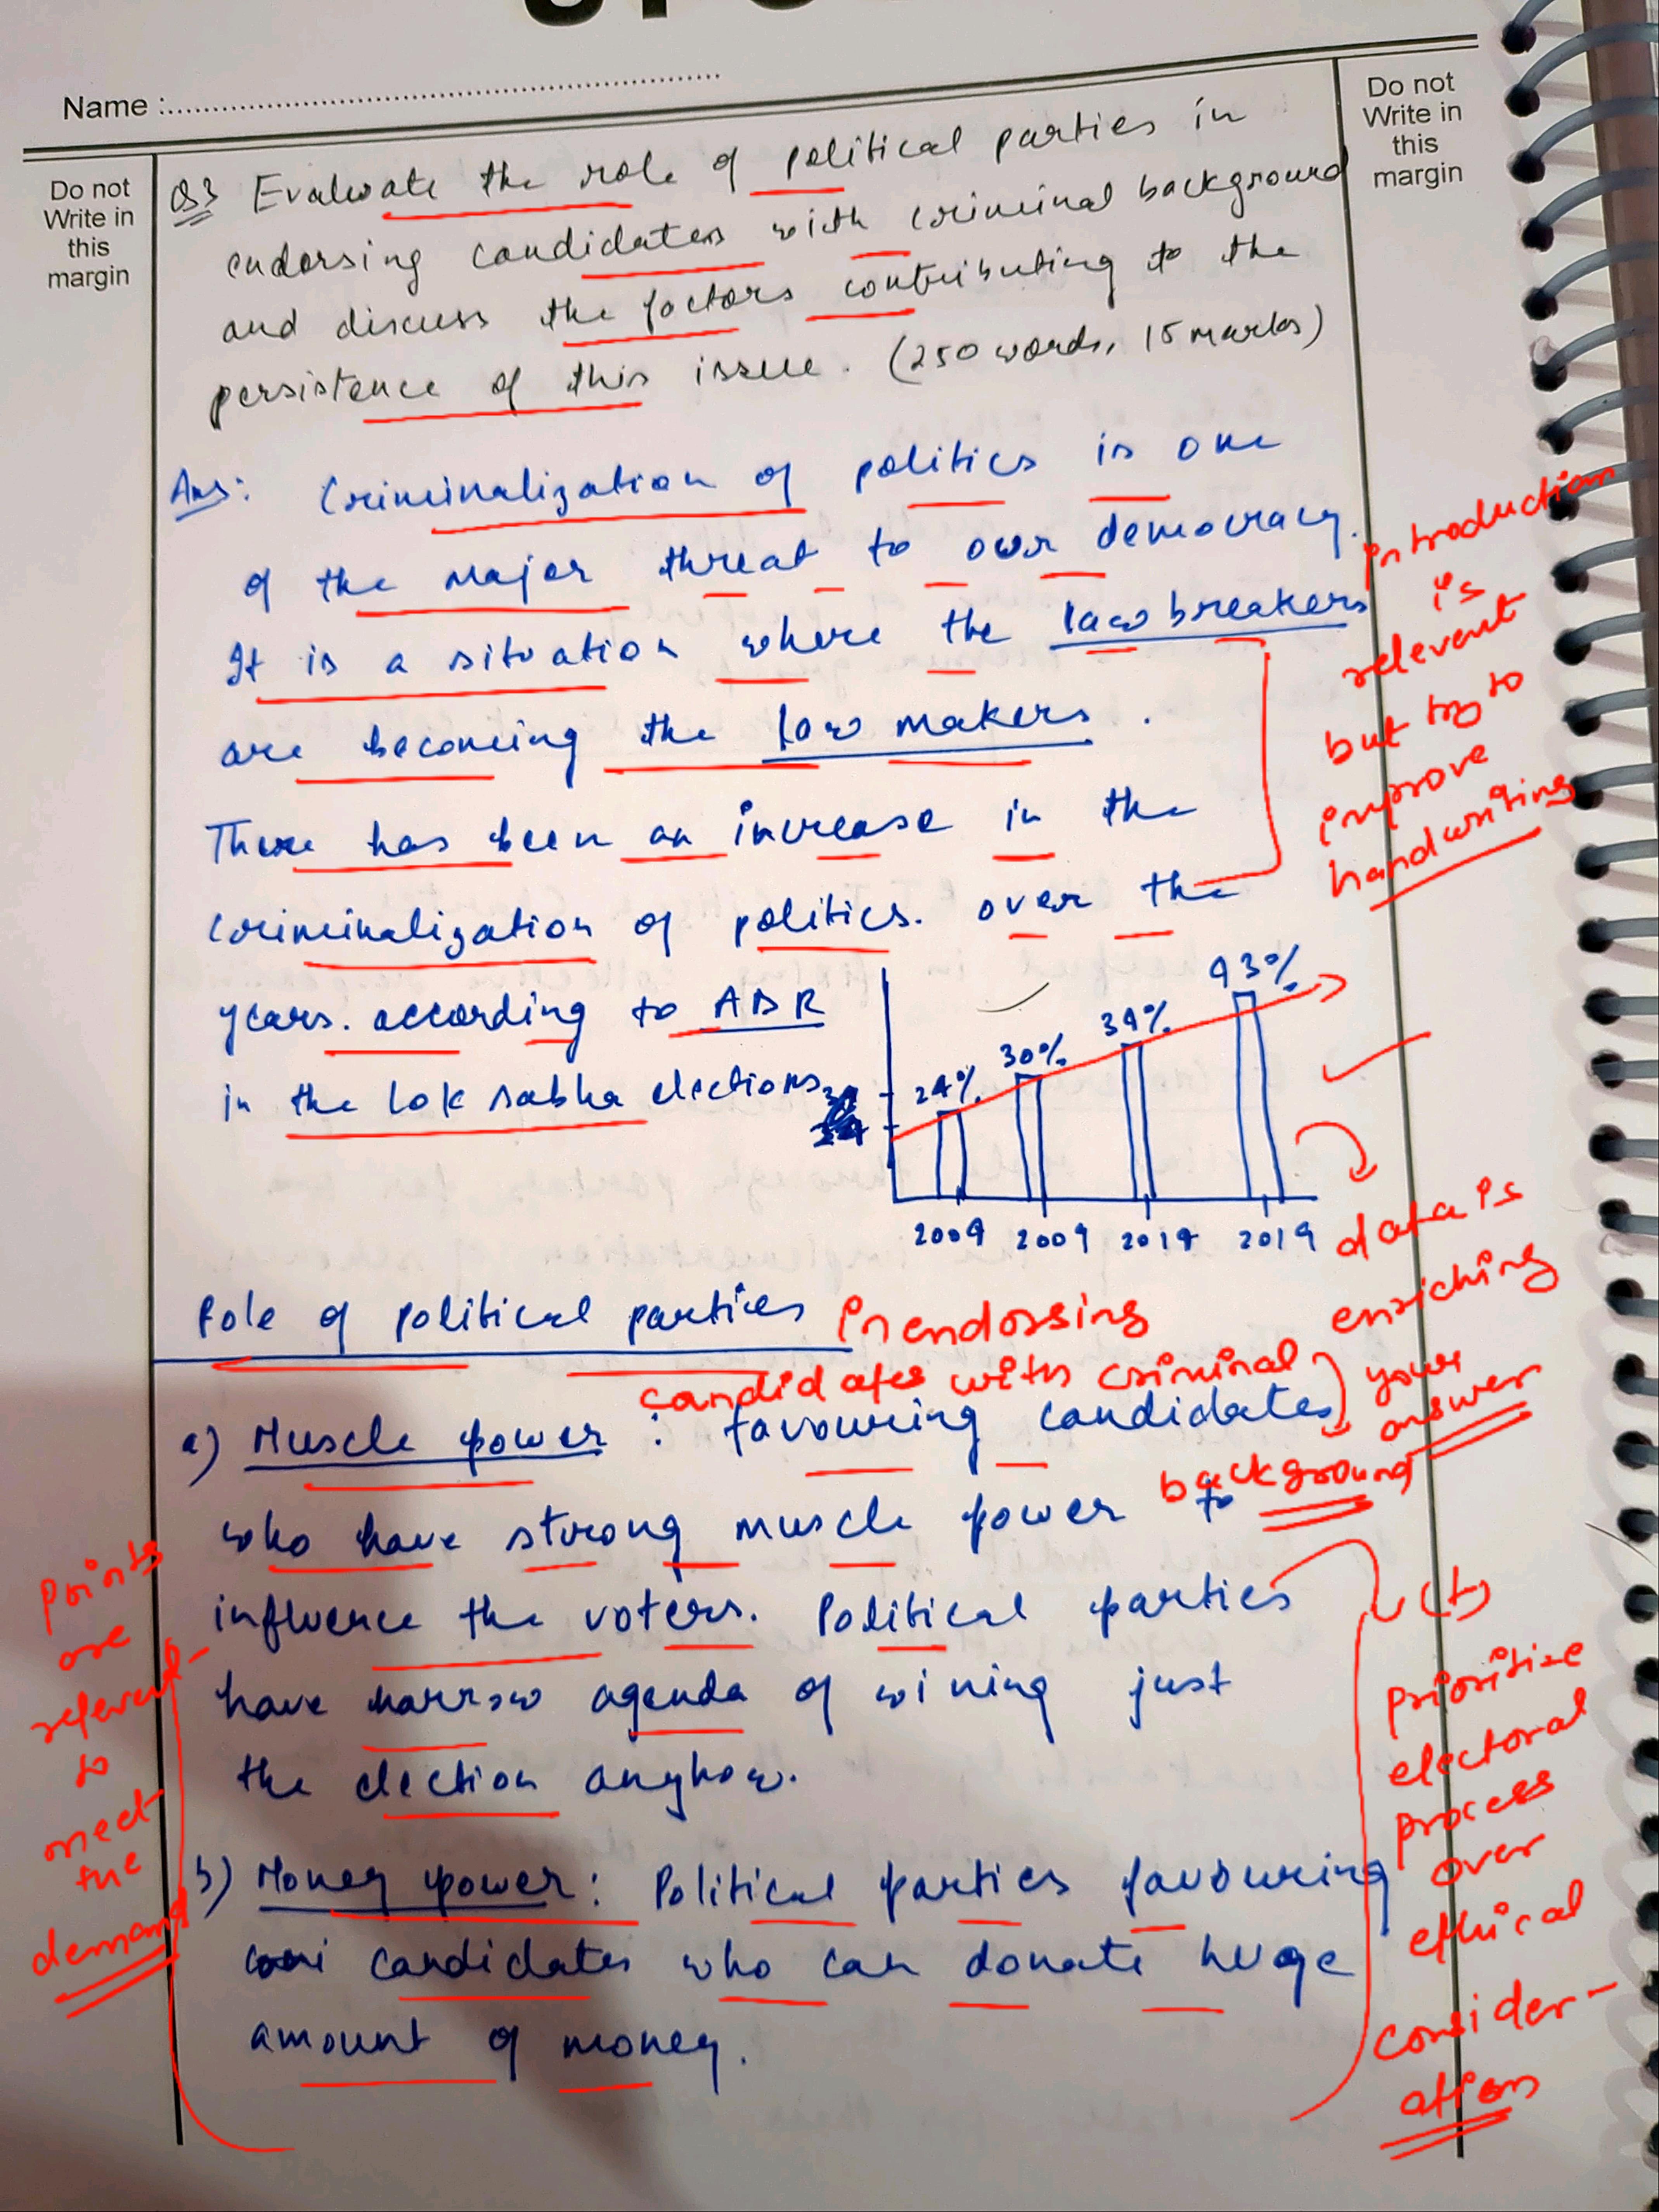 Name :
Do not
Write in
this
margin
Do not
Write in
this
margin
Q3 Evaluate the role of political parties in
endorsing candidates with criminal background
and discuss the factors contributing to the
persistence of this issue. (250 words, 15 marks)
Ans: Criminalization of politics is one
of the major threat to our democracy.
It is a situation where the law breakers
are becoming the law makers.
There has been an increase in the
criminalization of politics. over the
years. according to ADR
in the lok sabha elections
introduction
is
relevent
but try to
improve
handwriting
24% 30% 34% 43%
2004 2009 2014 2019
data is
enriching
your
answer
Role of political parties in endorsing
candidates with criminal
background
a) Muscle power : favouring candidates
who have strong muscle power to
influence the voters. Political parties
have narrow agenda of wining just
the election anyhow.
b) Money power : Political parties favouring
candidates who can donate huge
amount of money.
points
are
relevent
to
meet
the
demand
(+)
prioritize
electoral
process
over
ethical
consider-
ations